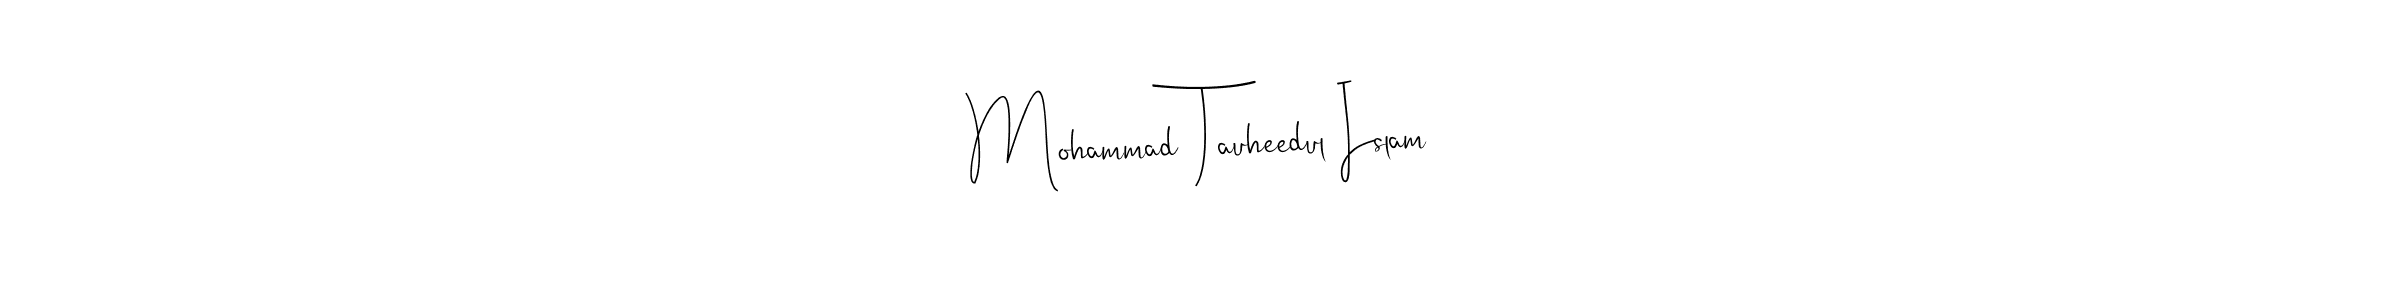 Mohammad Tauheedul Islam